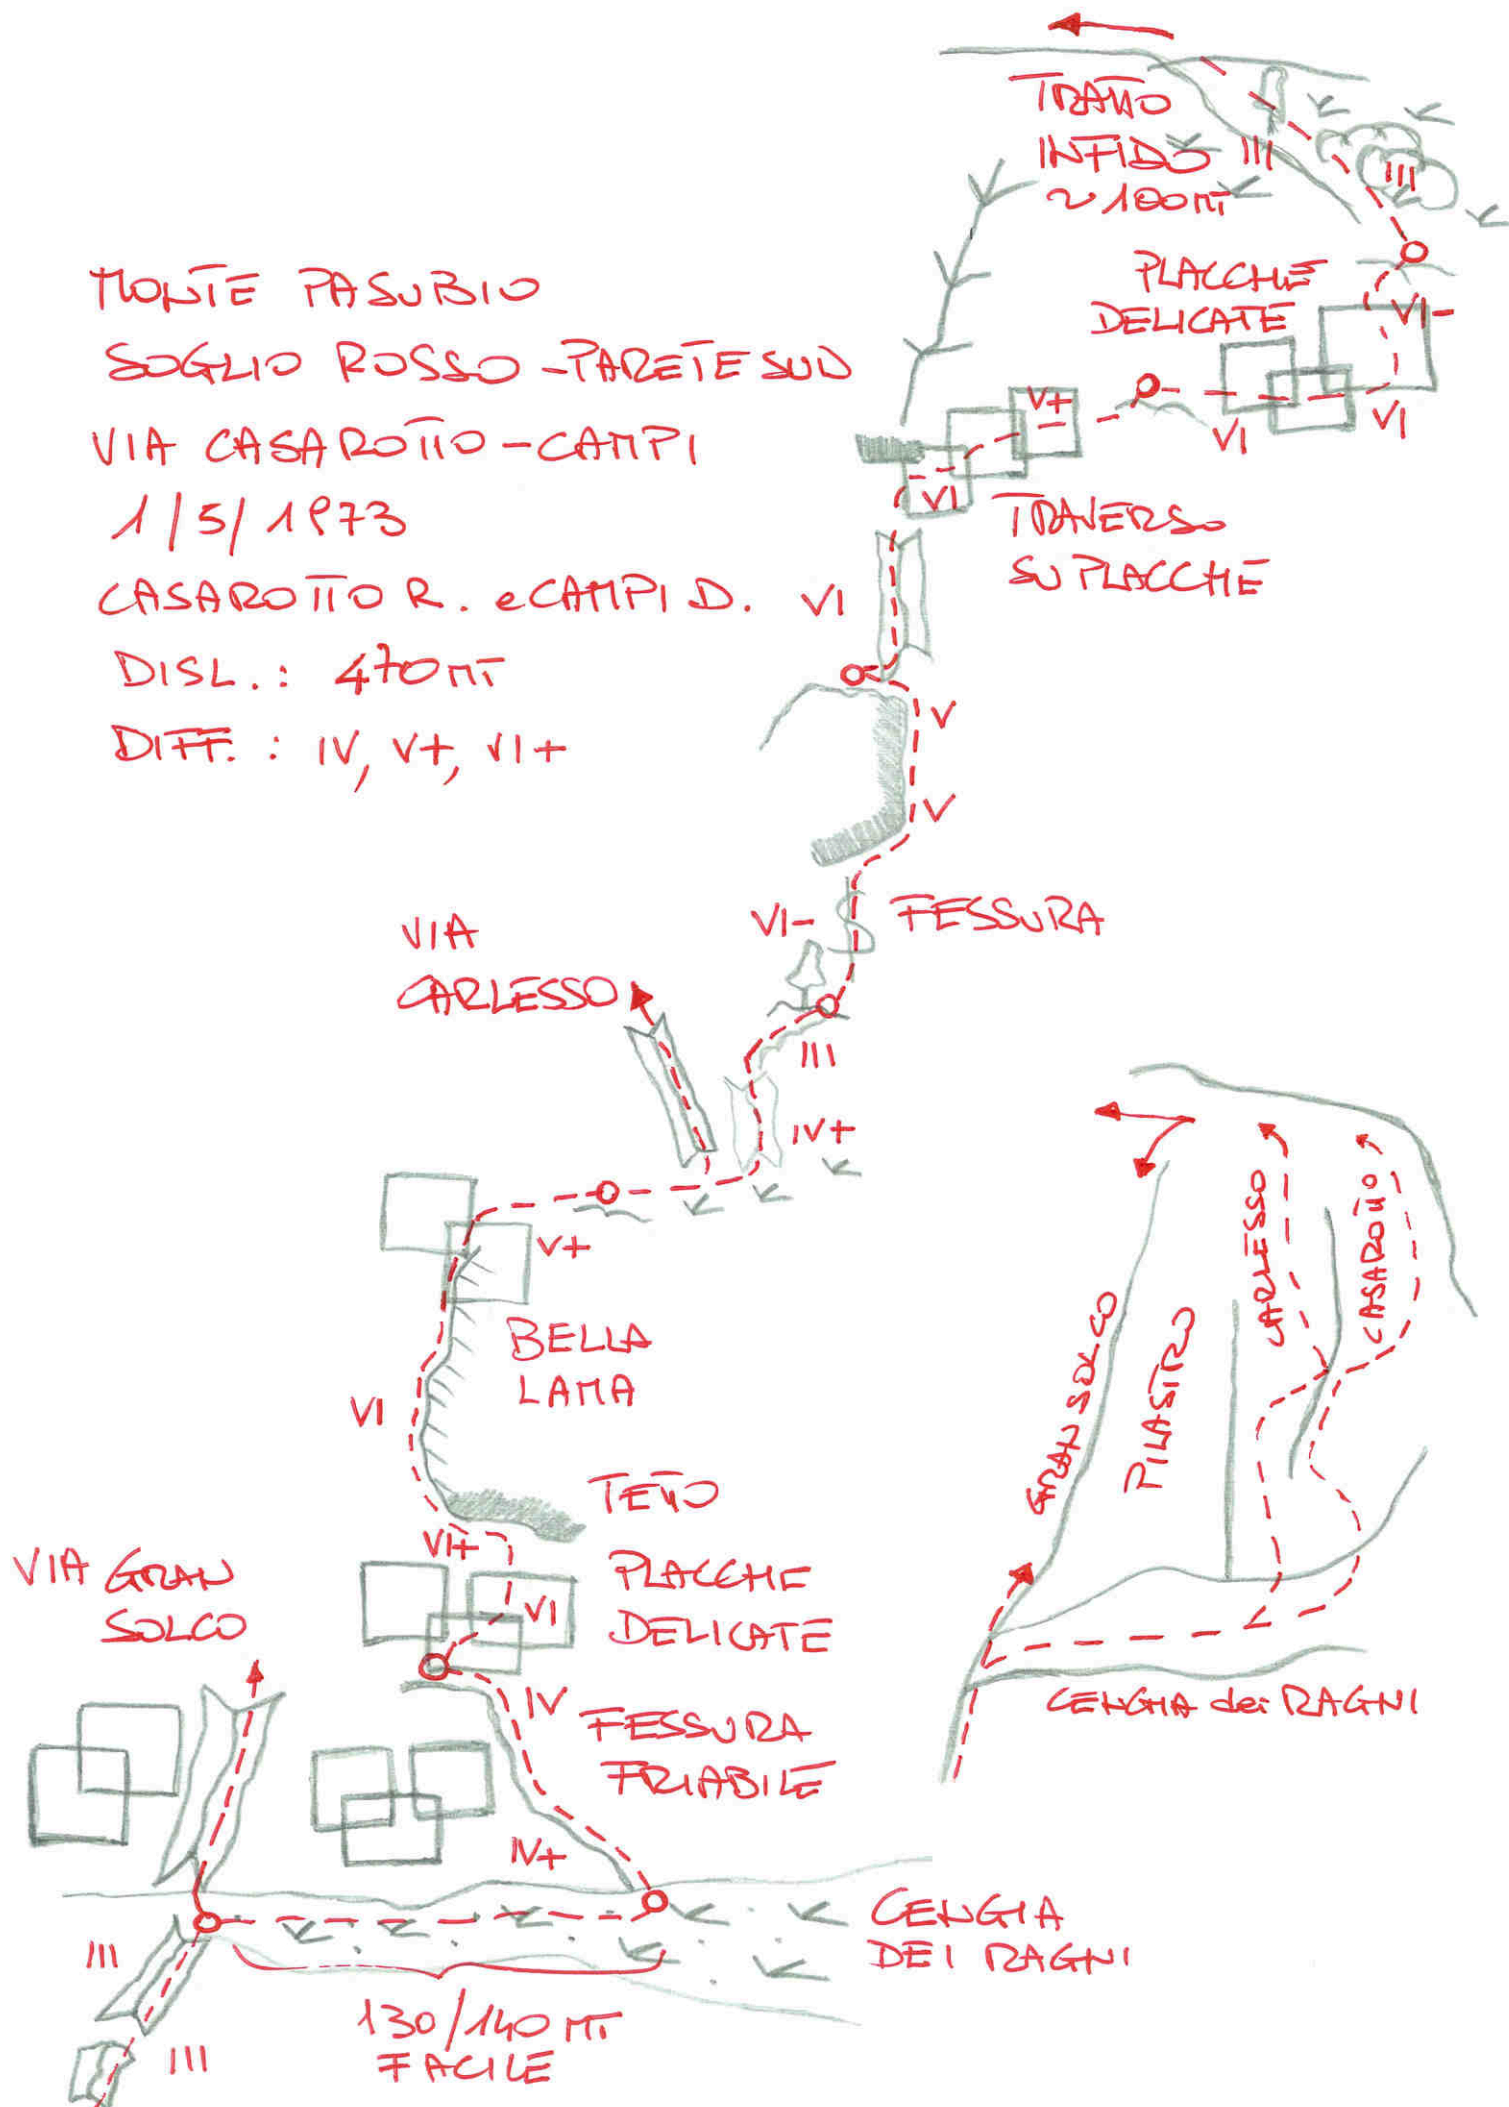 MONTE PASUBIO
SOGLIO ROSSO - PARETE SUD
VIA CASAROTTO - CAMPI
1/5/1973
CASAROTTO R. e CAMPI D.
DISL.: 470 MT
DIFF.: IV, V+, VI+
TRATTO
INFIDO
~100MT
III
III
PLACCHE
DELICATE
VI-
VI
VI
V+
VI
TRAVERSO
SU PLACCHE
VI
V
V
VI-
FESSURA
VIA
CARLESSO
III
IV+
V+
BELLA
LAMA
VI
TETTO
VI+
PLACCHE
DELICATE
VI
VIA GRAN
SOLCO
IV
FESSURA
FRIABILE
IV+
CENGIA
DEI RAGNI
III
III
130/140 MT.
FACILE
GRAN SOLCO
PILASTRO
CARLESSO
CASAROTTO
CENGIA dei RAGNI